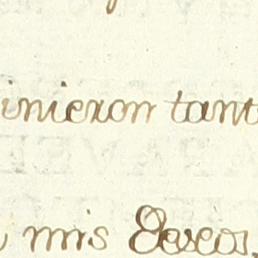 inieron tant
mis Deseos.